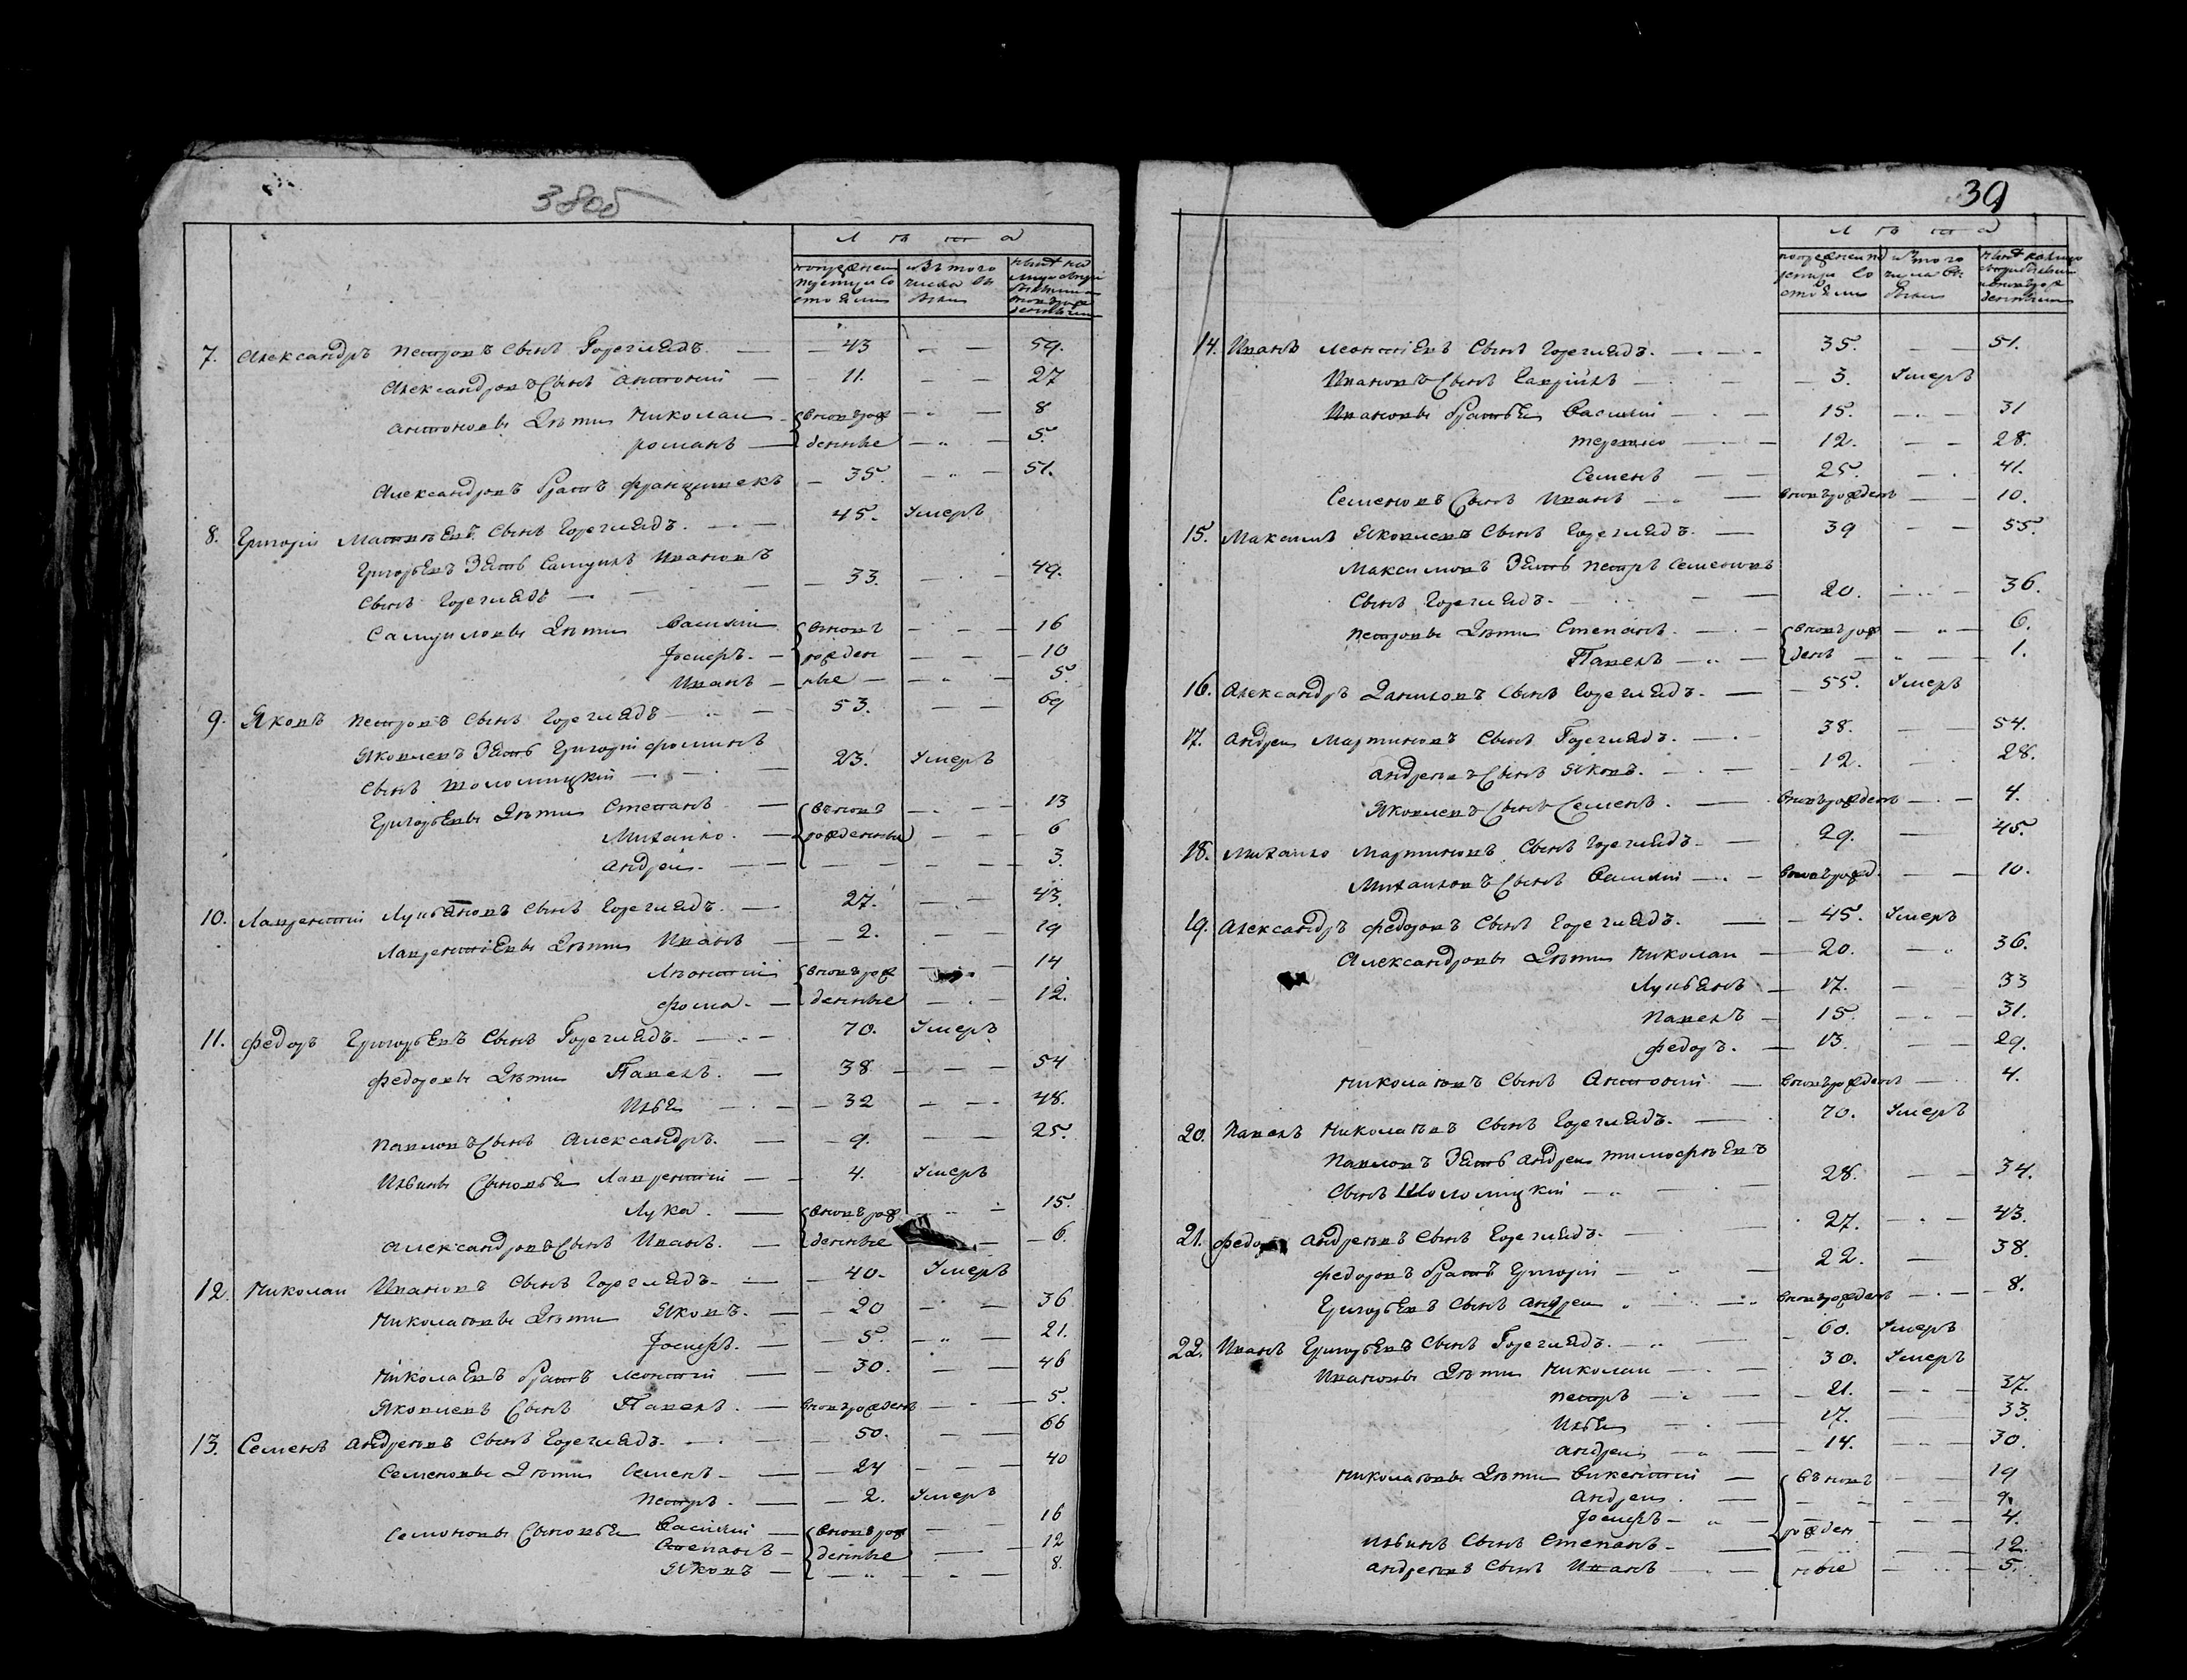 38об
Лѣта
7. Александръ Петровъ сынъ Гореглядъ. 43 59.
Александровъ сынъ Антоній 11. 27
Антоновы дѣти Николай вновърож 8
Романъ денные 5.
Александровъ братъ Францишекъ 35. 51.
8. Григорій Матвѣевъ сынъ Гореглядъ. 45. Умеръ
Григорьевъ зять Самуилъ Ивановъ
сынъ Гореглядъ 33. 49.
Самуиловы дѣти Василій вновъ 16
Іосифъ. рожден 10
Иванъ ные 5.
9. Яковъ Петровъ сынъ Гореглядъ 53. 69
Яковлевъ зять Григорій Фоминъ
сынъ Шоломицкій 23. Умеръ
Григорьевы дѣти Степанъ вновъ 13
Михайло. рожденные 6
Андрей. 3.
10. Лаврентій Лукьяновъ сынъ Гореглядъ. 27. 43.
Лаврентіевы дѣти Иванъ 2. 19
Леонтій вновърож 14
Фома. денные 12.
11. Федоръ Григорьевъ сынъ Гореглядъ. 70. Умеръ
Федоровы дѣти Павелъ. 38 54
Илья 32 48.
Павловъ сынъ Александръ. 9. 25.
Ильины сыновья Лаврентій 4. Умеръ
Лука. вновърож 15.
Александровъ сынъ Иванъ. денные 6.
12. Николай Ивановъ сынъ Гореглядъ. 40. Умеръ
Николаевы дѣти Яковъ. 20 36
Іосифъ. 5. 21.
Николаевъ братъ Леонтій 30. 46
Яковлевъ сынъ Павелъ. вновърожденъ 5.
13. Семенъ Андреевъ сынъ Гореглядъ. 50. 66
Семеновы дѣти Семенъ. 24 40
Петръ. 2. Умеръ
Семоновы сыновья Василій вновърож 16
Степанъ денные 12
Яковъ 8.
39
Лѣта
14. Иванъ Леонтіевъ сынъ Гореглядъ. 35. 51.
Ивановъ сынъ Гаврійлъ 3. Умеръ
Ивановы братья Василій 15. 31
12. 28.
Семенъ 25. 41.
Семеновъ сынъ Иванъ вновърожденъ 10.
15. Максимъ Яковлевъ сынъ Гореглядъ. 39 55.
Максимовъ зять Петръ Семеновъ
сынъ Гореглядъ. 20. 36.
Петровы дѣти Степанъ. вновърож 6.
Павелъ денъ 1.
16. Александръ Даниловъ сынъ Гореглядъ. 55. Умеръ
17. Андрей Мартиновъ сынъ Гореглядъ. 38. 54.
Андреевъ сынъ Яковъ. 12. 28.
Яковлевъ сынъ Семенъ. вновърожденъ 4.
18. Михайло Мартиновъ сынъ Гореглядъ. 29. 45.
Михайловъ сынъ Василій вновърожд. 10.
19. Александръ Федоровъ сынъ Гореглядъ. 45. Умеръ
Александровы дѣти Николай 20. 36.
Лукьянъ 17. 33
Павелъ 15. 31.
Федоръ. 13. 29.
Николаевъ сынъ Антоній вновърожденъ 4.
20. Павелъ Николаевъ сынъ Гореглядъ. 70. Умеръ
Павловъ зять Андрей Тимофѣевъ
сынъ Шоломицкій 28. 34.
21. Федоръ Андреевъ сынъ Гореглядъ. 27. 43.
Федоровъ братъ Григорій 22. 38.
Григорьевъ сынъ Андрей вновърожденъ 8.
22. Иванъ Григорьевъ сынъ Гореглядъ. 60. Умеръ
Ивановы дѣти Николай 30. Умеръ
Петръ 21. 37.
Илья 17. 33.
Андрей 14. 30.
Николаевы дѣти Викентій вновъ 19
Андрей. 9.
Іосифъ рожден 4.
Ильинъ сынъ Степанъ 12.
Андреевъ сынъ Иванъ ные 5.